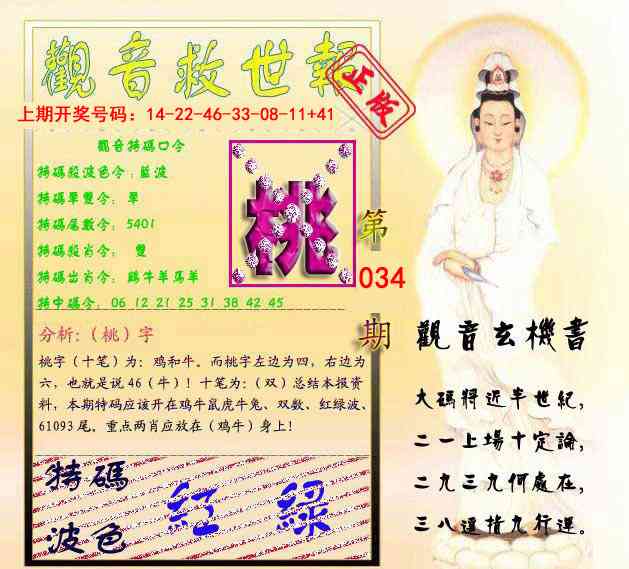 觀音救世報
正版
上期开奖号码：14-22-46-33-08-11+41
觀音特碼口令
特碼殺波色令：藍波
特碼單雙令：單
特碼尾數令：5401
特碼殺肖令：雙
特碼出肖令：鷄牛羊馬羊
特中碼令：06 12 21 25 31 38 42 45
桃
第
034
期
分析:（桃）字
桃字（十笔）为：鸡和牛。而桃字左边为四，右边为
六，也就是说46（牛）！十笔为：（双）总结本报资
料，本期特码应该开在鸡牛鼠虎牛兔、双数、红绿波、
61093尾。重点两肖应放在（鸡牛）身上！
特碼
波色
紅 綠
觀音玄機書
大碼將近半世紀，
二一上場十定論，
二九三九何處在，
三八運指九行運。